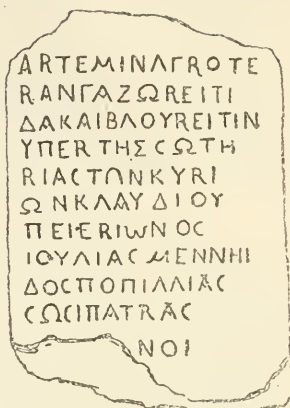 ΑRΤΕΜΙΝΑΓRΟΤΕ
RΑΝΓΑΖΩRΕΙΤΙ
ΔΑΚΑΙΒΛΟΥRΕΙΤΙΝ
ΥΠΕRΤΗΣCΩΤΗ
RΙΑCΤΩΝΚΥRΙ
ΩΝΚΛΑΥΔΙΟΥ
ΠΕΙΕRΙωΝΟC
ΙΟΥΛΙΑCΜΕΝΝΗΙ
ΔΟCΠΟΠΙΛΛΙΑC
CΩCΙΠΑΤRΑC
ΝΟΙ